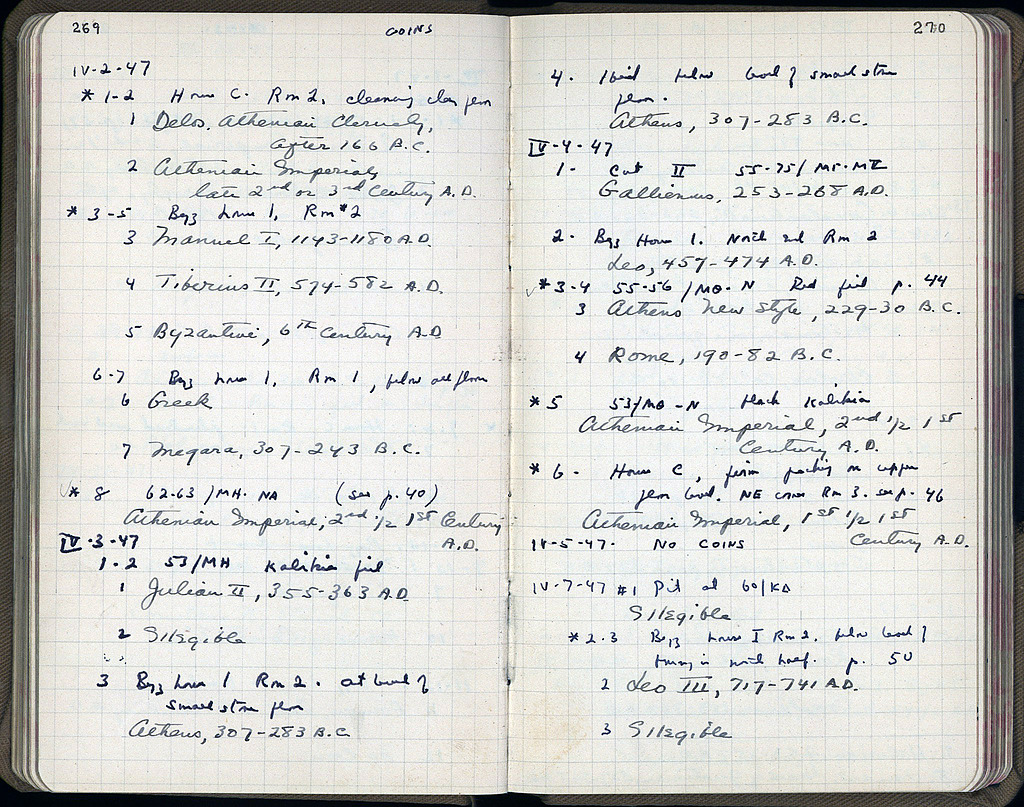 269
COINS
IV-2-47
* 1-2 House C. Rm 2, cleaning clay floor
1 Delos, Athenian Cleruchy,
after 166 B.C.
2 Athenian Imperial,
late 2nd or 3rd Century A.D.
* 3-5 Byz house 1, Rm #2
3 Manuel I, 1143-1180 A.D.
4 Tiberius II, 574-582 A.D.
5 Byzantine, 6th Century A.D.
6-7 Byz house 1, Rm 1, below floor
6 Greek
7 Megara, 307-243 B.C.
* 8 62-63/MH-NA (see p. 40)
Athenian Imperial, 2nd 1/2 1st Century
A.D.
IV-3-47
1-2 53/MH Kalikia fill
1 Julian II, 355-363 A.D.
2 Illegible
3 Byz house 1 Rm 2. at level of
small stone floor
Athens, 307-283 B.C.
270
4. Ibid below level of small stone
floor.
Athens, 307-283 B.C.
IV-4-47
1- Cut II 55-75/
Gallienus, 253-268 A.D.
2- Byz House 1. North end Rm 2
Leo, 457-474 A.D.
* 3-4 55-56/MΘ-N Red fill p. 44
3 Athens New Style, 229-30 B.C.
4 Rome, 190-82 B.C.
* 5 53/MΘ-N Black Kalikia
Athenian Imperial, 2nd 1/2 1st
Century A.D.
* 6- House C, from packing on upper
floor level. NE corner Rm 3. see p. 46
Athenian Imperial, 1st 1/2 1st
Century A.D.
IV-5-47- NO COINS
IV-7-47 #1 Pit at 60/KΔ
Illegible
* 2-3 Byz house I Rm 2. below level of
in north half. p. 50
2 Leo III, 717-741 A.D.
3 Illegible